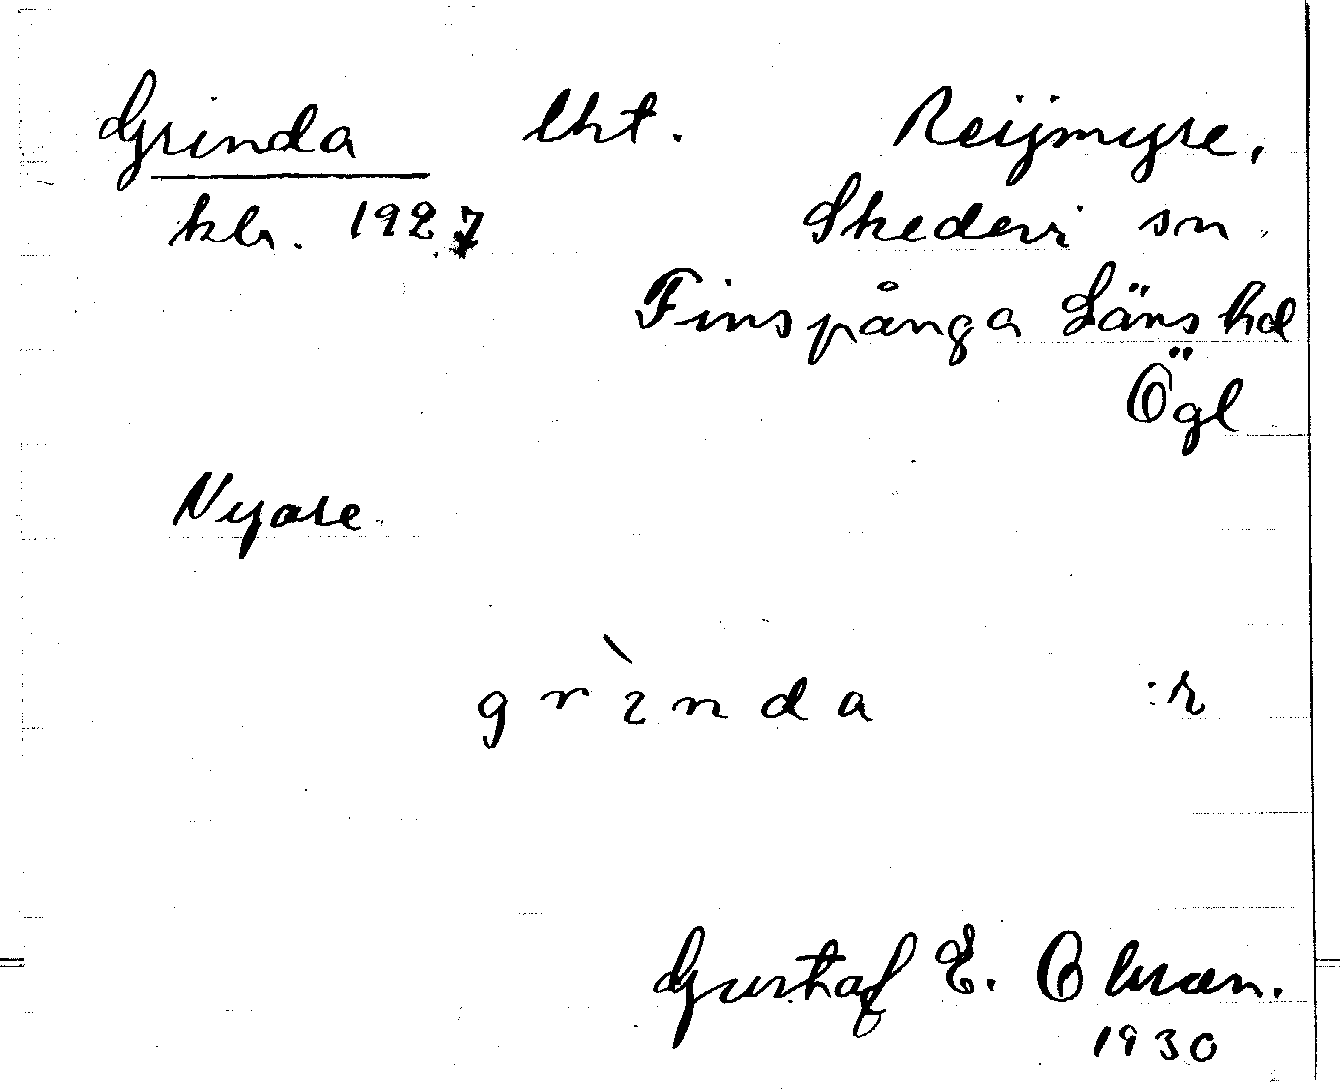 Grinda lht. Reijmyre,
kbr. 1927 Skedevi sn.
Finspånga Läns hd
Ögl
Nyare
grìnda :r
Gustaf E. Olsson.
1930